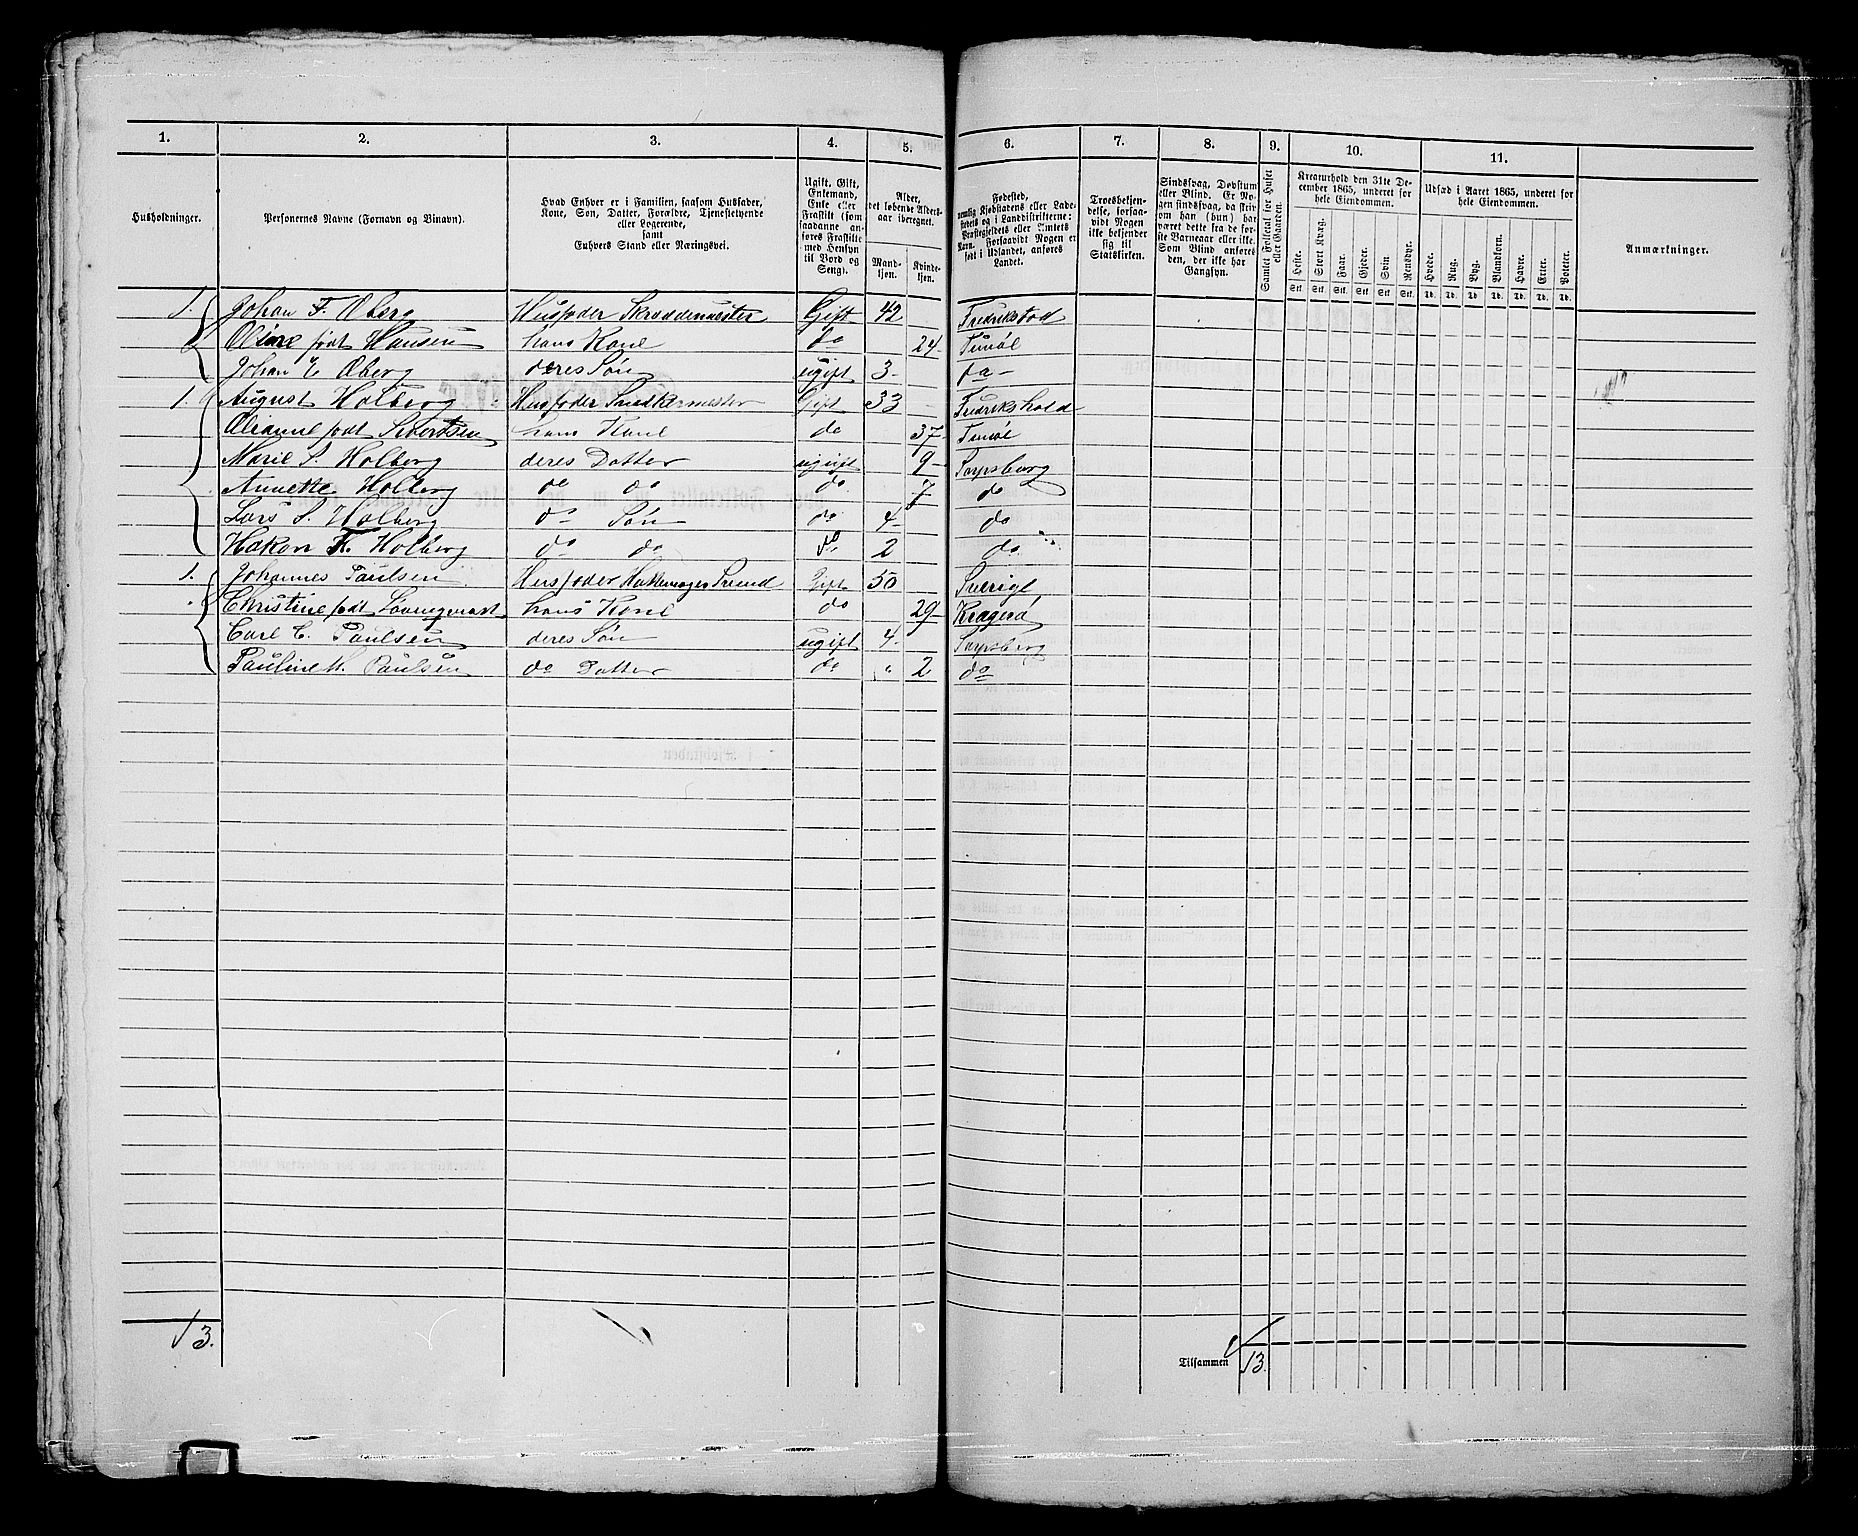 1. 2. 3. 4. 5. 6. 7. 8. 9. 10. 11.
Husholdninger.
Personernes Navne (Fornavn og Binavn).
Hvad Enhver er i Familien, saasom Husfader,
Kone, Søn, Datter, Forældre, Tjenestetyende
eller Logerende,
samt
Enhvers Stand eller Næringsvei.
Ugift, Gift,
Enkemand,
Enke eller
Fraskilt (som
saadanne an-
føres Fraskilte
med Hensyn
til Bord og
Seng).
Alder,
det løbende Alders-
aar iberegnet.
Mand-
kjøn.
Kvinde-
kjøn.
Fødested,
nemlig Kjøbstadens eller Lade-
stedets og i Landdistrikterne:
Præstegjeldets eller Amtets
Navn. Forsaavidt Nogen er
født i Udlandet, anføres
Landet.
Troesbekjen-
delse, forsaa-
vidt Nogen
ikke bekjender
sig til
Statskirken.
Sindssvag, Døvstum
eller Blind. Er No-
gen sindssvag, da skriv
om han (hun) har
været dette fra de før-
ste Barneaar eller ikke.
Som Blind anføres
den, der ikke har
Gangsyn.
Samlet Folketal for Huset
eller Gaarden.
Kreaturhold den 31te De-
cember 1865, underet for
hele Eiendommen.
Heste. Stort Kvæg. Faar. Gjeder. Svin. Rensdyr.
Stk. Stk. Stk. Stk. Stk. Stk.
Udsæd i Aaret 1865, underet for
hele Eiendommen.
Hvede. Rug. Byg. Blandkorn. Havre. Erter. Poteter.
Td. Td. Td. Td. Td. Td. Td.
Anmærkninger.
1. Johan F. Øberg Husfader Skræddermester Gift 42 Fredrikstad
Oline født Hansen hans Kone do 24 Tunøe
Johan E Øberg deres Søn ugift 3 do
1. August Holberg Husfoder Snedkermester Gift 33 Fredrikshald
født Sivertsen hans Kone do 37 Tunøe
Marie S. Holberg deres Datter ugift 9 Sarpsborg
Annette Holberg do do do 7 do
Lars S. Holberg do Søn do 4 do
Hakon F. Holberg do do do 2 do
1. Johannes Paulsen Husfoder Svend Gift 50 Sverige
Christine født hans Kone do 29 Kragerø
Carl C. Paulsen deres Søn ugift 4 Sarpsborg
Pauline M. Paulsen do Datter do " 2 do
13.
Tilsammen 13.